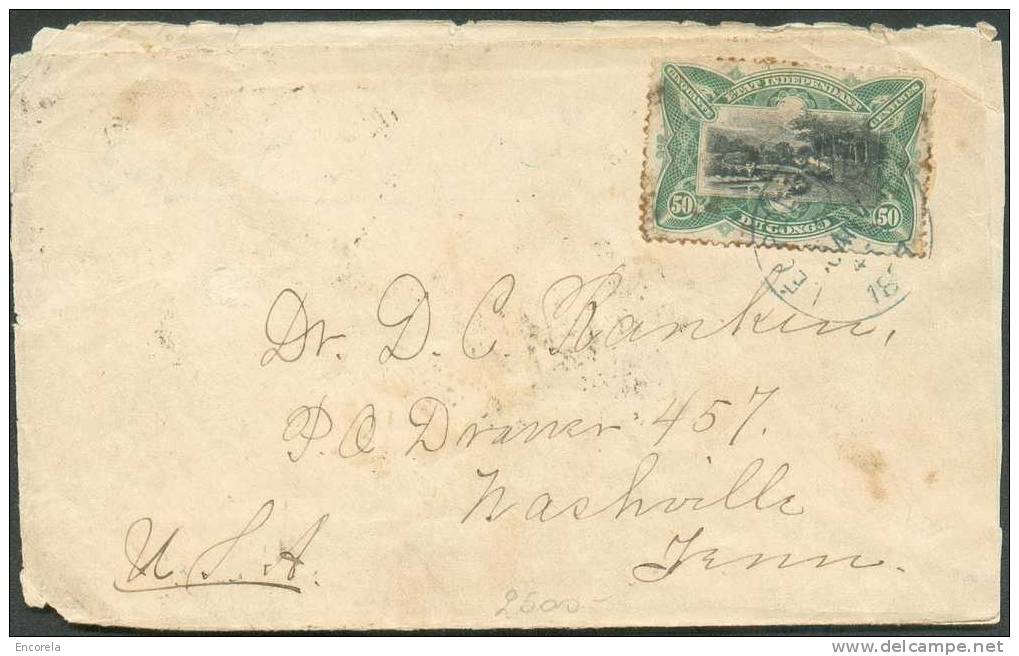 CINQUANTE
ETAT INDEPENDANT
CENTIMES
50
DU CONGO
50
Dr. D. C. Rankin,
P.O Drawer 457.
Nashville
Tenn.
U.S.A.
2500-
Encorela
www.delcampe.net